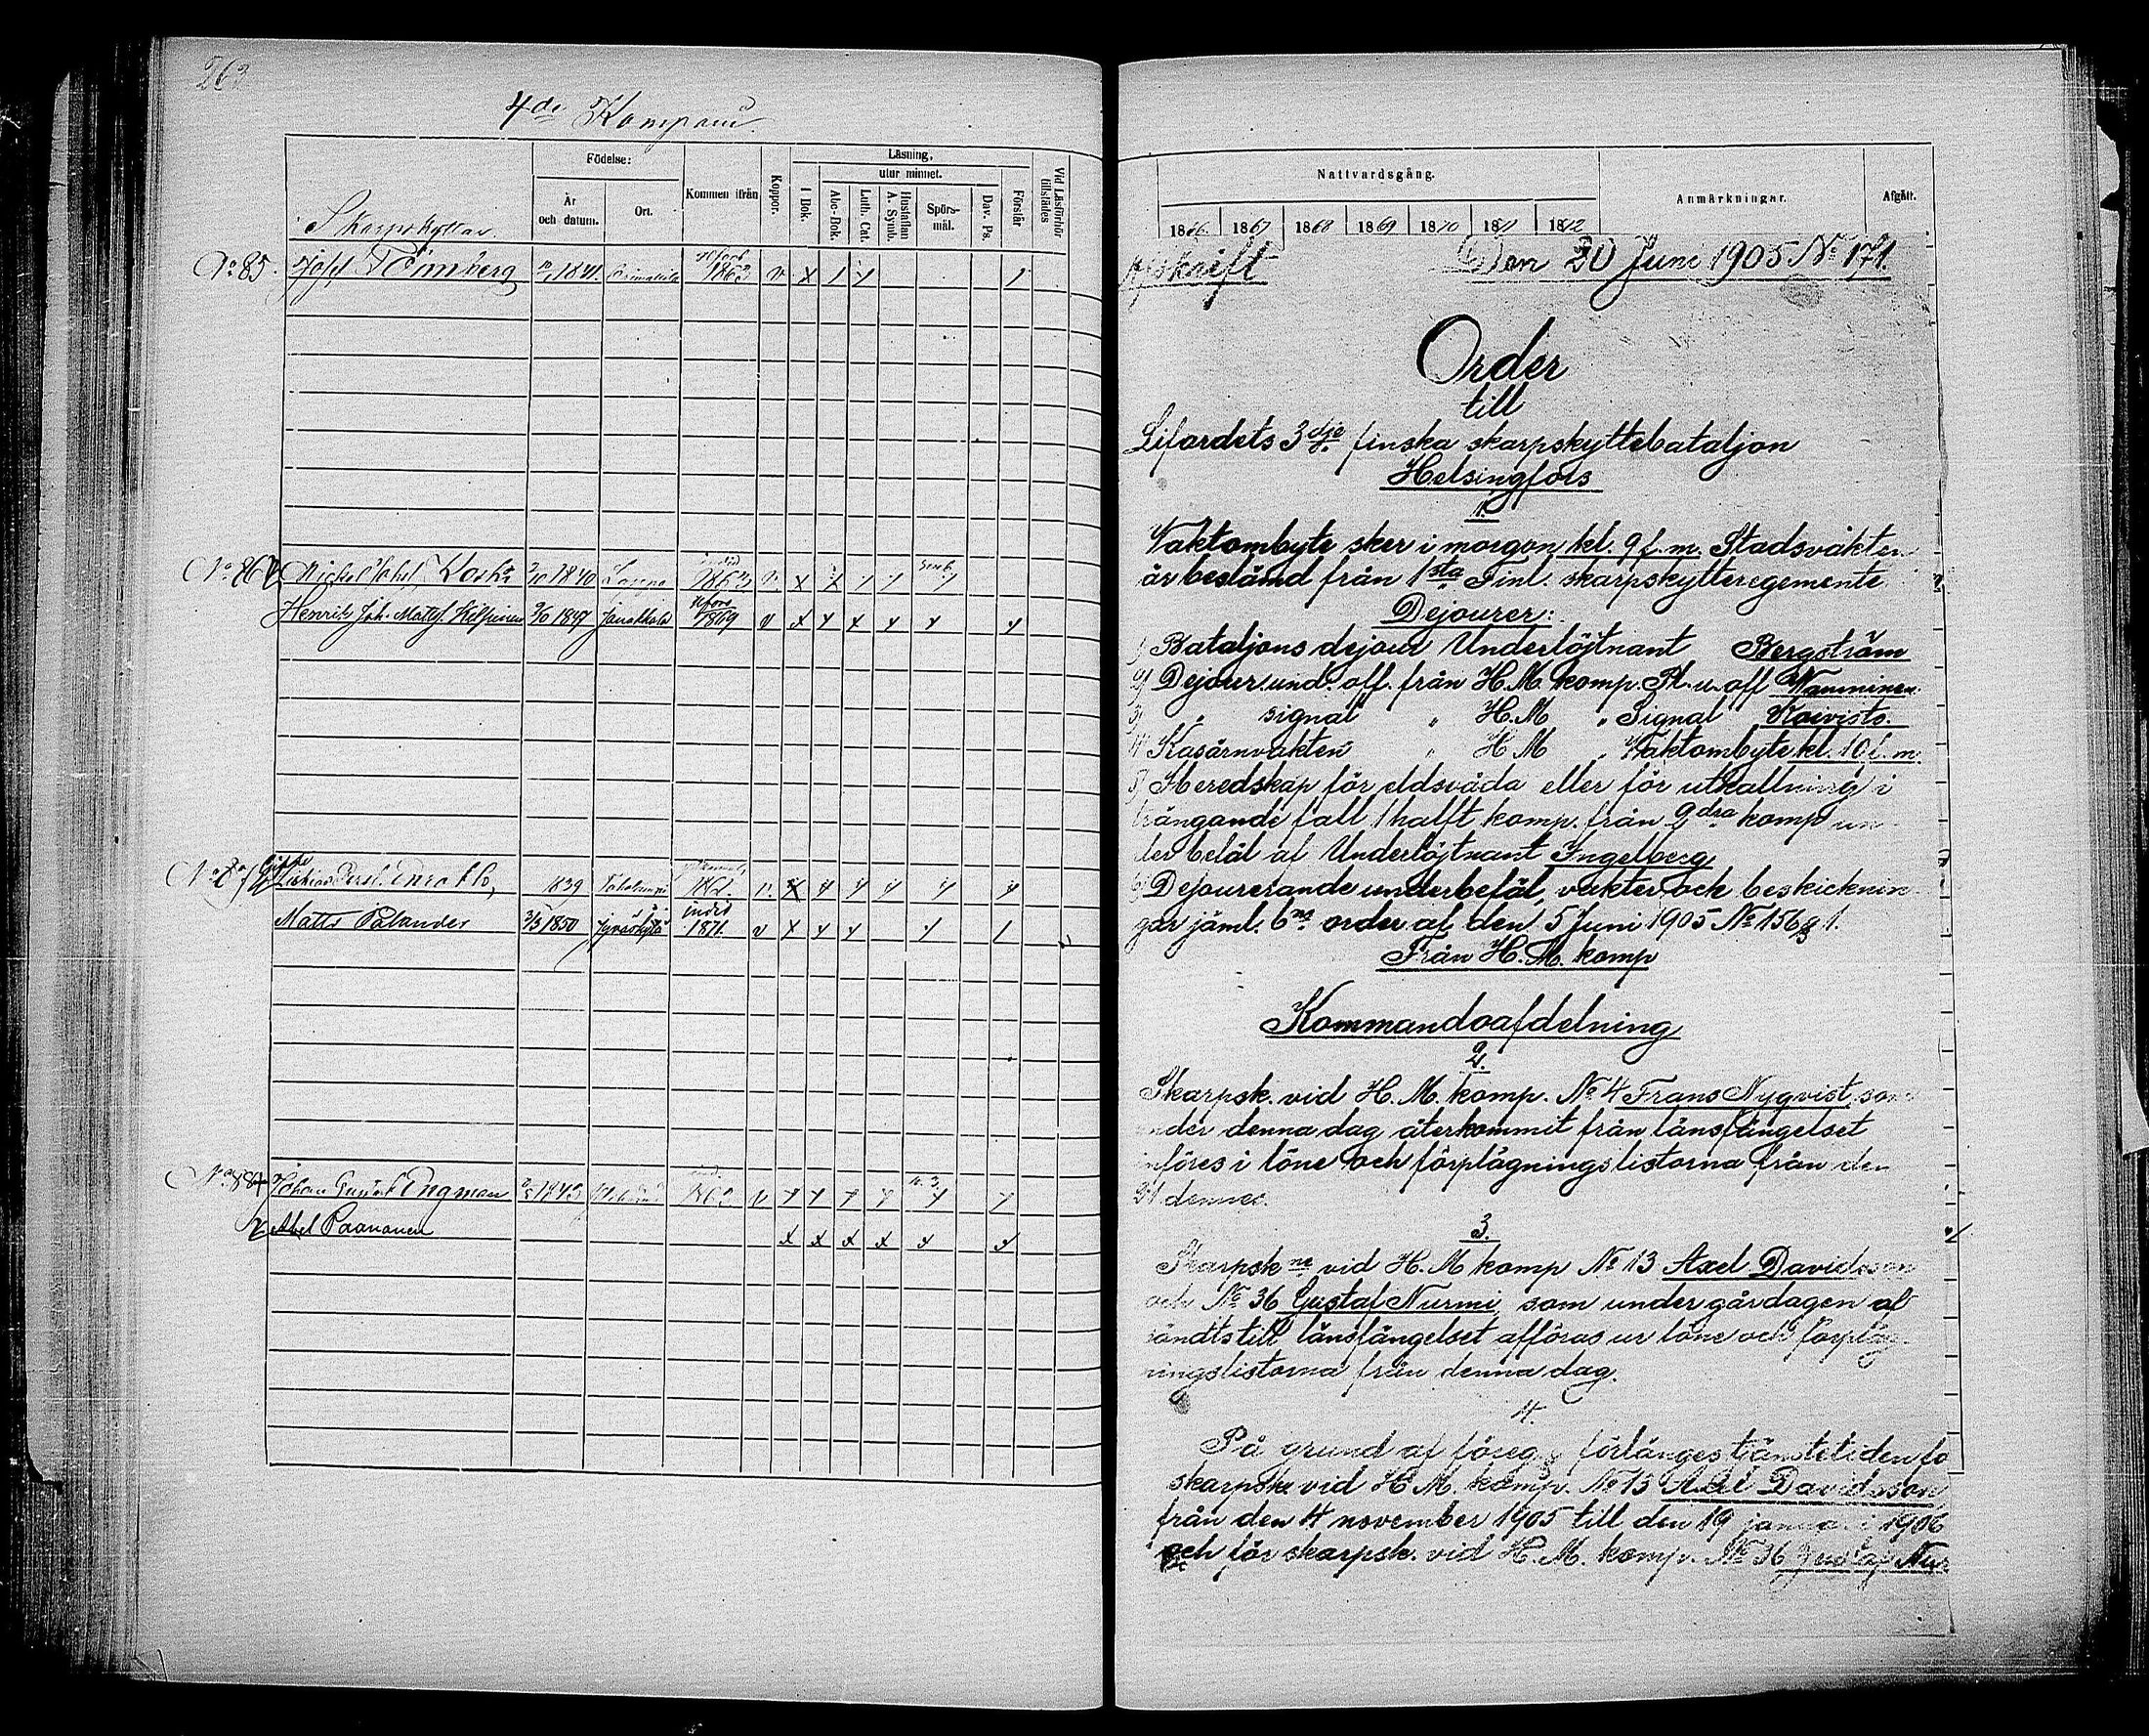 263
4de Kompani.
Skarpskyttar.
Födelse:
År och datum.
Ort.
Kommen ifrån
Koppor.
Läsning,
I Bok.
utur minnet.
Abc-Bok.
Luth. Cat.
A. Symb.
Hustaflan
Spörsmål.
Dav. Ps.
Förstår
Vid Läsförhör tillstädes
No 85. 1841. Hfors 1863 v
No 86 Michel Johsf. Koski 1840 Lappo 1863 v
Henrik Joh. Mattsf. Kilpinen 1849 Janakkala Hfors 1869 v
1839 v.
Matts Palander 3/3 1850 Jyväskylä indid 1871. v
No 88 Johan Gustaf Engman 1843 1863 v
2 Abel Paananen
Nattvardsgång.
Anmärkningar.
Afgått.
1866. 1867 1868 1869 1870 1871 1872
Afskrift Den 20 Juni 1905 No 171.
Order
till
Lifgardets 3dje finska skarpskyttebataljon
Helsingfors
1.
Vaktombyte sker i morgon kl. 9 f.m. Stadsvakten
är bestämd från 1sta Finl. skarpskytteregemente
Dejourer:
1) Bataljons dejour Underlöjtnant Bergström
2) Dejour. und. off. från H.M. komp. Pl. u. off Wanninen
3) " signal " H.M " Signal Koivisto.
4) Kasärnvakten " H M " Vaktombyte kl. 10 f.m.
5) I beredskap för eldsvåda eller för utkallning i
trängande fall 1 halft komp. från 2dra komp un-
der befäl af Underlöjtnant Ingelberg
6) Dejourerande underbefäl, vakter och beskicknin-
gar jäml. order af den 5 Juni 1905 No 156 § 1.
Från H.M. komp
Kommandoafdelning
2.
Skarpsk. vid H.M. komp. No 4 Frans Nyqvist, som
under denna dag återkommit från länsfängelset
införes i löne och förplägningslistorna från den
21 dennes.
3.
Skarpskne vid H.M komp No 13 Axel Davidsson
och No 36 Gustaf Nurmi, som under gårdagen af-
sändts till länsfängelset afföras ur löne och förpläg-
ningslistorna från denna dag.
4.
På grund af föreg. § förlänges tjänstetiden fö
skarpsk. vid H M. komp. No 13 Axel Davidsson
från den 4 november 1905 till den 19 januari 1906
och för skarpsk. vid H.M. komp. No 36 Gustaf Nur-